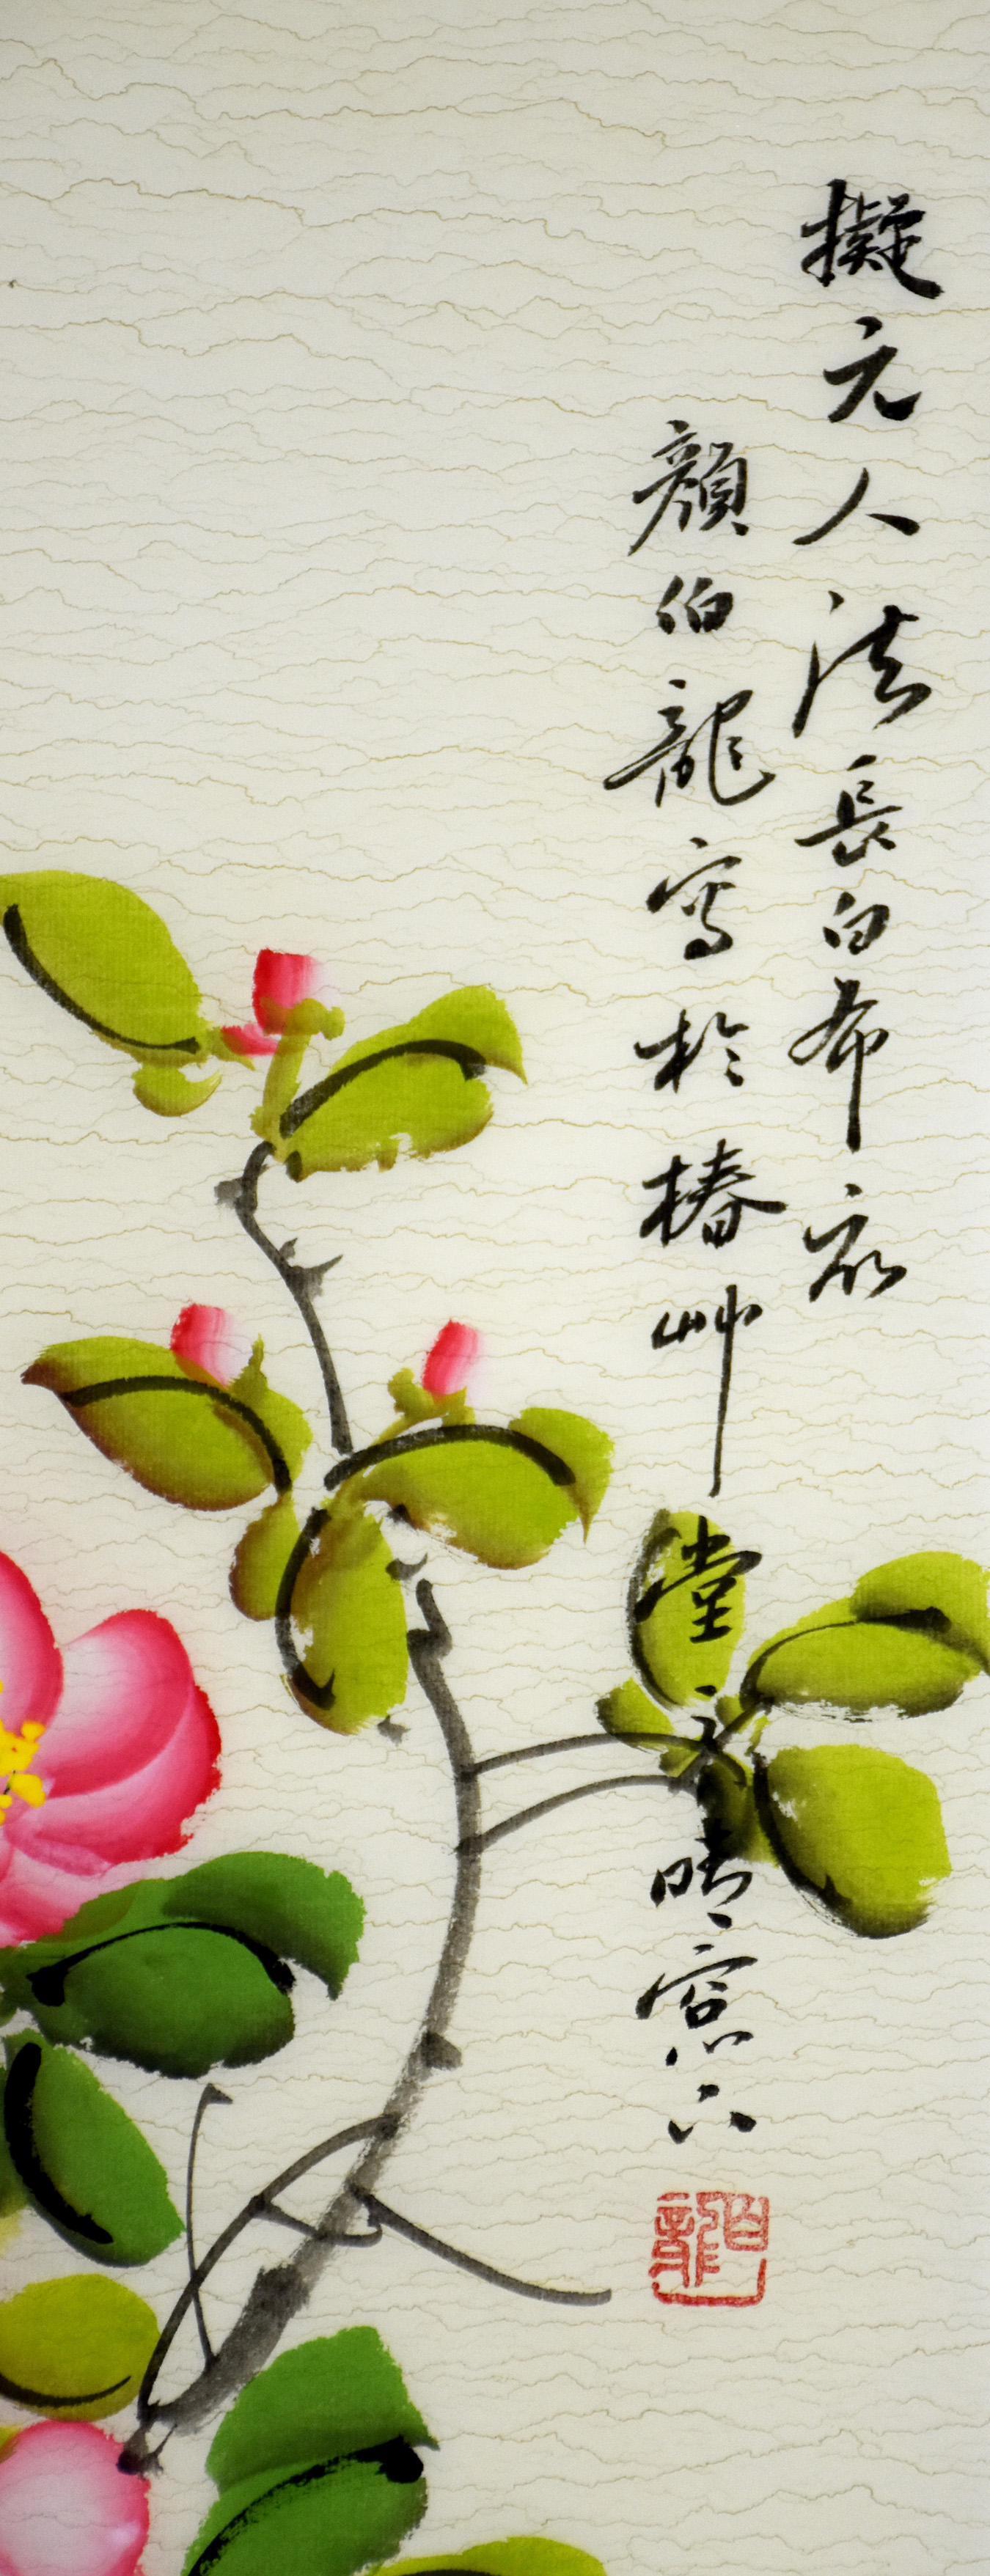 擬元人法長白布衣
顏伯龍寫於椿艸堂之晴窓下
伯龍